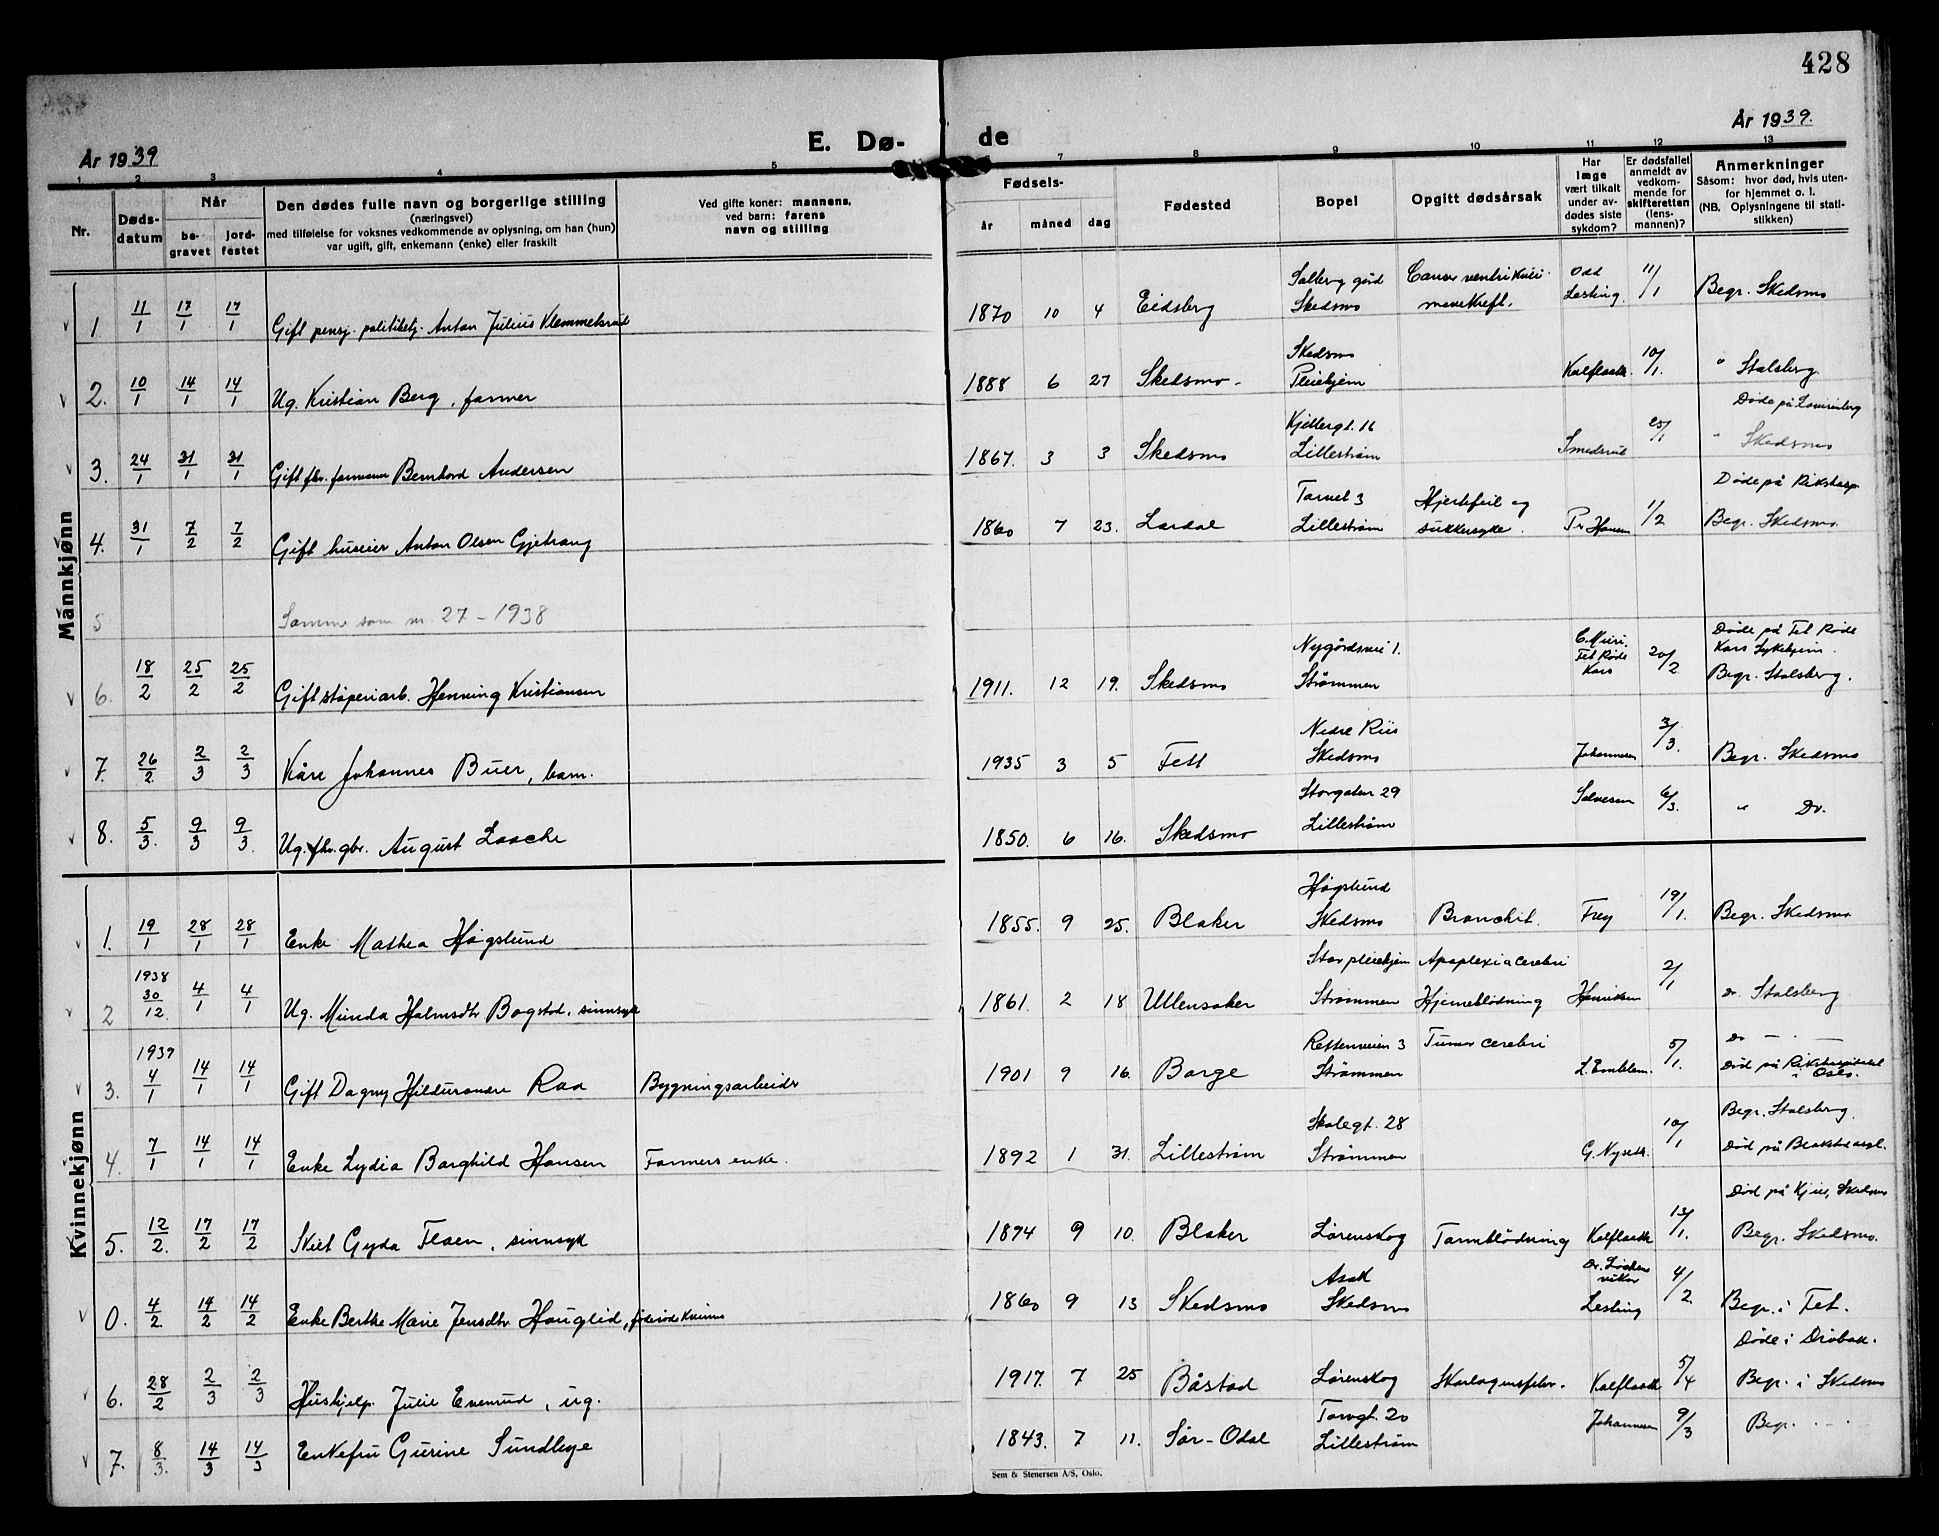 428
År 1939
E. Dø-
de
År 1939.
1 2 3 4 5
7 8 9 10 11 12 13
Nr.
Døds-
datum
Når
be-
gravet
jord-
festet
Den dødes fulle navn og borgerlige stilling
(næringsvei)
med tilføielse for voksnes vedkommende av oplysning, om han (hun)
var ugift, gift, enkemann (enke) eller fraskilt
Ved gifte koner: mannens,
ved barn: farens
navn og stilling
Fødsels-
år måned dag
Fødested
Bopel
Opgitt dødsårsak
Har
læge
vært tilkalt
under av-
dødes siste
sykdom?
Er dødsfallet
anmeldt av
vedkom-
mende for
skifteretten
(lens-
mannen)?
Anmerkninger
Såsom: hvor død, hvis uten-
for hjemmet o. l.
(NB. Oplysningene til stati-
stikken)
Mannkjønn
1. 11/1 17/1 17/1 Gift pensj. politibetj. Anton Julius Klemmetsrud 1870 10 4 Eidsberg
Skedsmo
Odd
Lesting 11/1 Begr. Skedsmo
2. 10/1 14/1 14/1 Ug. Kristian Berg, farmer 1888 6 27 Skedsmo -
Skedsmo
Pleiehjem Kalflaath 10/1. " Stalsberg.
3. 24/1 31/1 31/1 Gift fhv. formann Bernhard Andersen 1867. 3 3 Skedsmo
Kjellergt. 16
Lillestrøm Smedsrud 25/1
Døde på Lovisenberg
" Skedsmo
4. 31/1 7/2 7/2 Gift huseier Anton Olsen Gjetrang 1860 7 23. Lardal
Torvet 3
Lillestrøm
Hjertefeil og
sukkersyke. Pr Hansen 1/2
Døde på Rikshosp
Begr. Skedsmo.
5 Samme som nr. 27 - 1938
6. 18/2 25/2 25/2 Gift støperiarb. Henning Kristiansen 1911. 12 19. Skedsmo
Nygårdsvei 1.
Strømmen
Fet Røde
Kors 20/2
Døde på Fet Røde
Kors Sykehjem.
Begr. Stalsberg.
7. 26/2 2/3 2/3 Kåre Johannes Buer, barn. 1935 3 5 Fett
Nedre Riis
Skedsmo Johannesen 3/3. Begr. Skedsmo
8. 5/3. 9/3 9/3. Ug. fhv. gbr. August Laache 1850. 6 16. Skedsmo
Storgaten 29
Lillestrøm Salvesen 6/3. " Do.
Kvinnekjønn
1. 19/1 28/1 28/1 Enke Mathea Høgslund 1855. 9 25. Blaker
Høgslund
Skedsmo Bronchit. Frey 19/1. Begr. Skedsmo
2 1938 30/12. 4/1 4/1 Ug. Minda Holmsdtr Bogstad, sinnsyk 1861. 2 18 Ullensaker
Stor pleiehjem
Strømmen
Apoplexia cerebri
Hjerneblødning Henriksen 2/1 Do. Stalsberg
3. 1939 4/1 14/1 14/1 Gift Dagny Hildurandre Raa Bygningsarbeider 1901 9 16. Borge
Strømmen
Tumor cerebri L. Emblem. 5/1.
Do -
Død på Rikshospitalet
i Oslo.
4. 7/1 14/1 14/1 Enke Lydia Borghild Hansen Formers enke. 1892 1 31. Lillestrøm
Skolegt. 28
Strømmen 10/1
Begr. Stalsberg.
5. 12/2. 17/2 17/2 Skilt Gyda Floen, sinnsyk 1894 9 10. Blaker Lørenskog Tarmblødning Kalflaath 13/1.
Begr. Skedsmo.
0. 4/2. 14/2 14/2 Enke Berthe Marie Jensdtr Hauglid, føderådskvinne 1860 9 13 Skedsmo
Asak
Skedsmo
vikar
Lesting 4/2 Begr. i Fet.
6. 28/2 2/3 2/3 Hushjelp. Julie Evenrud, ug. 1917. 7 25 Båstad Lørenskog Skarlagensfeber. Kalflaath 5/4
Døde i Drøbak.
Begr. i Skedsmo
7. 8/3. 14/3 14/3 Enkefru Gurine Sundbye 1843. 7 11. Sør-Odal
Torvgt. 20
Lillestrøm Johannesen 9/3 Begr. - -
Sem & Stenersen A/S, Oslo.